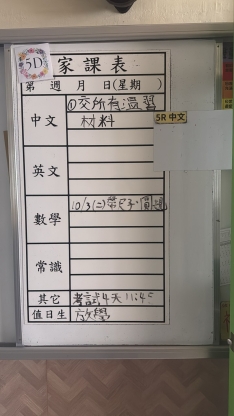 5D
家課表
第 週 月 日(星期 )
中文
①交所有溫習
材料
5R 中文
英文
數學
10/3(二)帶尺子、圓規
常識
其它
考試4天 11:45
值日生
放學